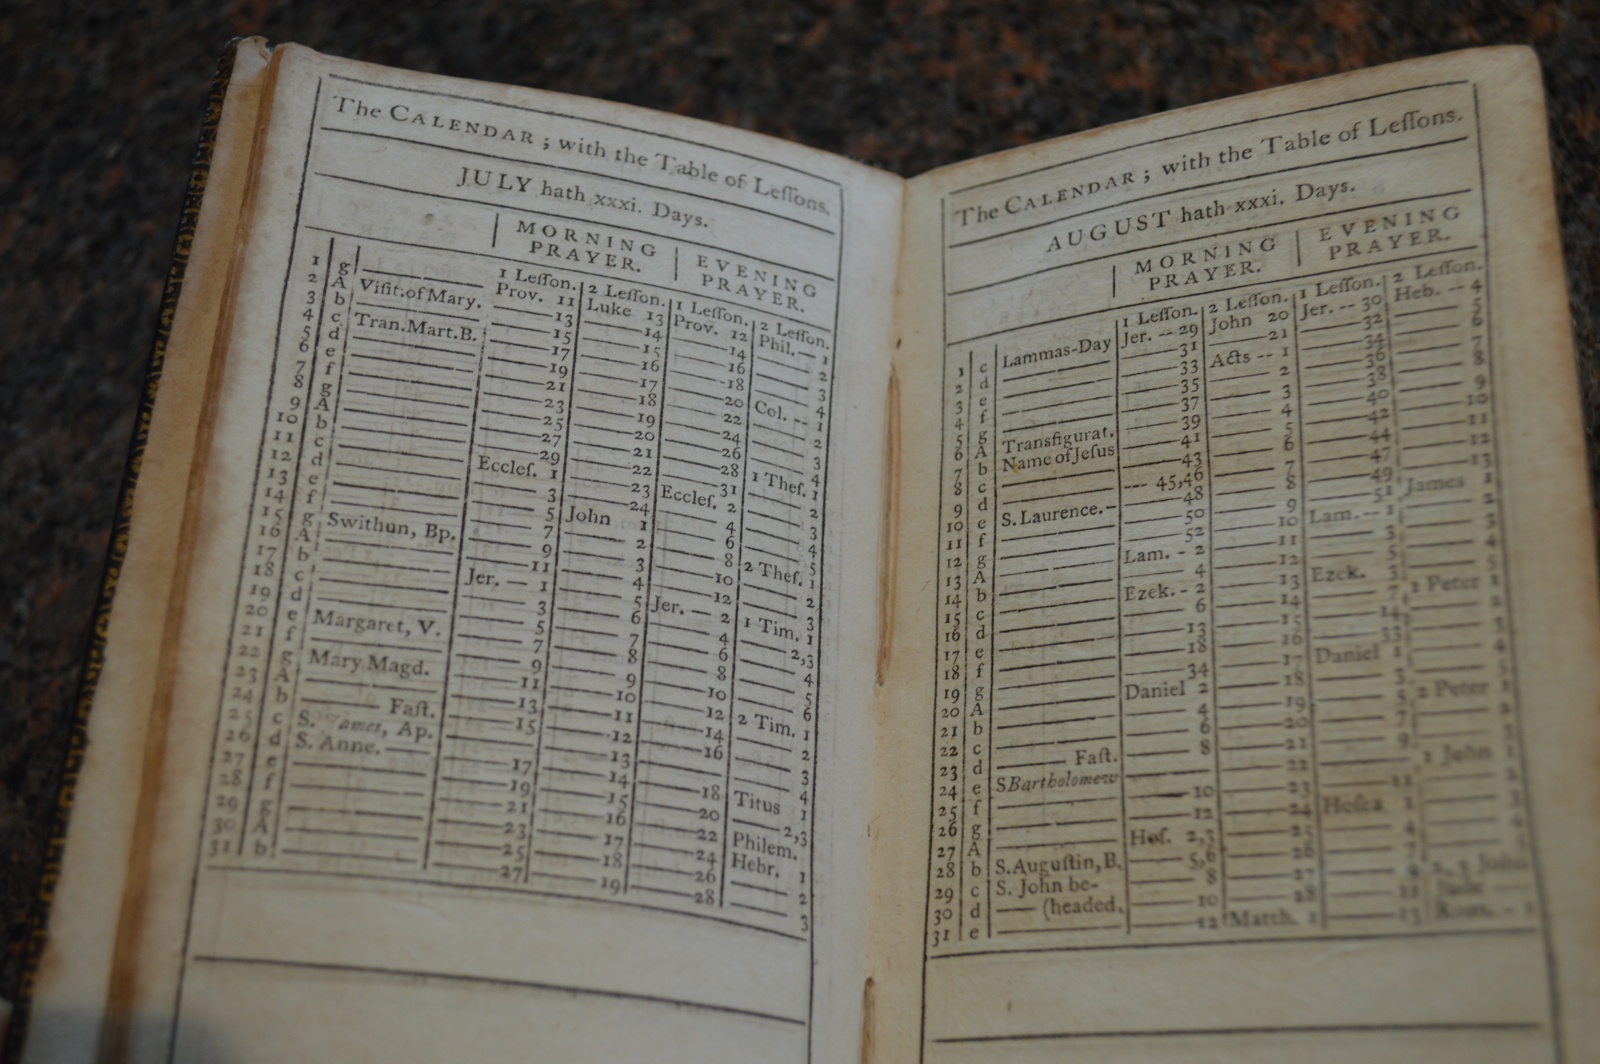 The CALENDAR ; with the Table of Leſſons.
JULY hath xxxi. Days.
MORNING PRAYER. EVENING PRAYER.
1 Leſſon. 2 Leſſon. 1 Leſſon. 2 Leſſon.
1 g Prov. 11 Luke 13 Prov. 12 Phil. — 1
2 A Viſit: of Mary. 13 14 14 2
3 b 15 15 16 3
4 c Tran.Mart.B. 17 16 18 4
5 d 19 17 20 Col. -- 1
6 e 21 18 22 2
7 f 23 19 24 3
8 g 25 20 26 4
9 A 27 21 28 1 Theſ. 1
10 b 29 22 31 2
11 c Eccleſ. 1 23 Eccleſ. 2 3
12 d 3 24 4 4
13 e 5 John 1 6 5
14 f 7 2 8 2 Theſ. 1
15 g Swithun, Bp. 9 3 10 2
16 A 11 4 12 3
17 b Jer. — 1 5 Jer. — 2 1 Tim. 1
18 c 3 6 4 2,3
19 d 5 7 6 4
20 e Margaret, V. 7 8 8 5
21 f 9 9 10 6
22 g Mary Magd. 11 10 12 2 Tim. 1
23 A 13 11 14 2
24 b Faſt. 15 12 16 3
25 c S. James, Ap. 13 4
26 d S. Anne. 17 14 18 Titus 1
27 e 19 15 20 2,3
28 f 21 16 22 Philem.
29 g 23 17 24 Hebr. 1
30 A 25 18 26 2
31 b 27 19 28 3
The CALENDAR ; with the Table of Leſſons.
AUGUST hath xxxi. Days.
MORNING PRAYER. EVENING PRAYER.
1 Leſſon. 2 Leſſon. 1 Leſſon. 2 Leſſon.
1 c Lammas-Day Jer. -- 29 John 20 Jer. -- 30 Heb. -- 4
2 d 31 21 32 5
3 e 33 Acts -- 1 34 6
4 f 35 2 36 7
5 g 37 3 38 8
6 A Transfigurat. 39 4 40 9
7 b Name of Jeſus 41 5 42 10
8 c 43 6 44 11
9 d --- 45,46 7 47 12
10 e S. Laurence. - 48 8 49 13
11 f 50 9 51 James 1
12 g 52 10 Lam. -- 1 2
13 A Lam. - 2 11 3 3
14 b 4 12 5 4
15 c Ezek. - 2 13 Ezek. 3 5
16 d 6 14 7 1 Peter 1
17 e 13 15 14 2
18 f 18 16 33 3
19 g 34 17 Daniel 1 4
20 A Daniel 2 18 3 5
21 b 4 19 5 2 Peter 1
22 c 6 20 7 2
23 d Faſt. 8 21 9 3
24 e S Bartholomew 22 1 John 1
25 f 10 23 11 2
26 g 12 24 Hoſea 1 3
27 A Hoſ. 2,3 25 4 4
28 b S. Auguſtin, B. 5,6 26 7 5
29 c S. John be- 8 27 9 2, 3 John
30 d (headed. 10 28 11 Jude
31 e 12 Matth. 1 13 Rom. - 1